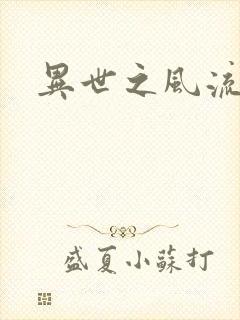 異世之風流
盛夏小蘇打